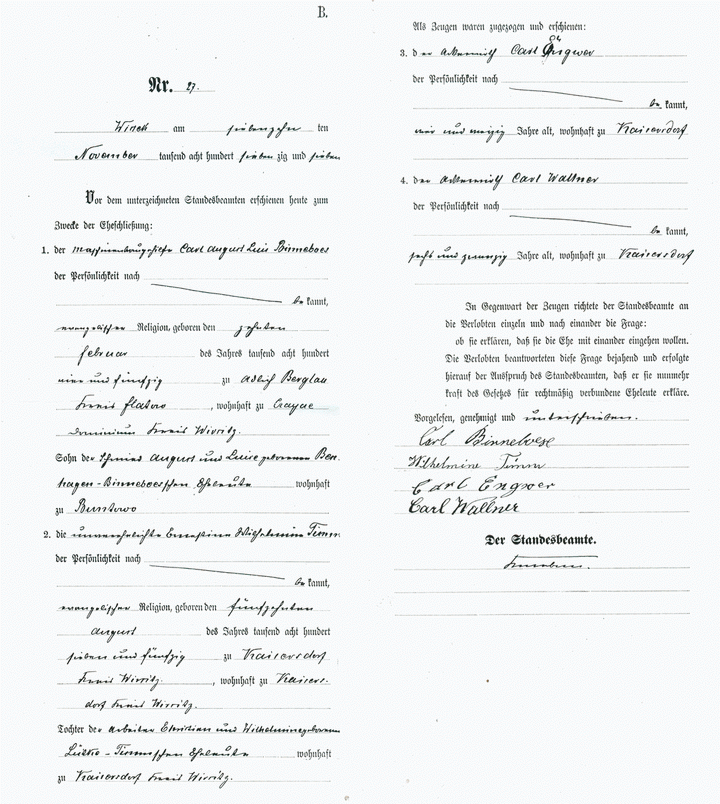 B.
Nr. 27.
am siebenzehn ten
November tausend acht hundert sieben zig und sieben
Vor dem unterzeichneten Standesbeamten erschienen heute zum
Zwecke der Eheschließung:
1. der Carl August Luis Binneboes
der Persönlichkeit nach
be kannt,
evangelischer Religion, geboren den zehnten
Februar des Jahres tausend acht hundert
vier und fünfzig zu Adlich
Kreis Flatow, wohnhaft zu
dominium Kreis Wirsitz.
Sohn der Schmied August und Luise geborenen Ben-
hagen-Binneboesschen Eheleute wohnhaft
zu Buntowo
2. die unverehelichte Ernestine Wilhelmine Timm
der Persönlichkeit nach
be kannt,
evangelischer Religion, geboren den fünfzehnten
August des Jahres tausend acht hundert
sieben und fünfzig zu Kaisersdorf
Kreis Wirsitz, wohnhaft zu Kaisers-
dorf Kreis Wirsitz.
Tochter der Arbeiter Christian und Wilhelmine geborenen
Timmschen Eheleute wohnhaft
zu Kaisersdorf Kreis Wirsitz.
Als Zeugen waren zugezogen und erschienen:
3. der Ackerwirth Carl Engwer
der Persönlichkeit nach
be kannt,
vier und Jahre alt, wohnhaft zu Kaisersdorf
4. der Ackerwirth Carl Wallner
der Persönlichkeit nach
be kannt,
sechs und zwanzig Jahre alt, wohnhaft zu Kaisersdorf
In Gegenwart der Zeugen richtete der Standesbeamte an
die Verlobten einzeln und nach einander die Frage:
ob sie erklären, daß sie die Ehe mit einander eingehen wollen.
Die Verlobten beantworteten diese Frage bejahend und erfolgte
hierauf der Ausspruch des Standesbeamten, daß er sie nunmehr
kraft des Gesetzes für rechtmäßig verbundene Eheleute erkläre.
Vorgelesen, genehmigt und unterschrieben.
Carl Binneboese
Wilhelmine Timm
Carl Engwer
Carl Wallner
Der Standesbeamte.